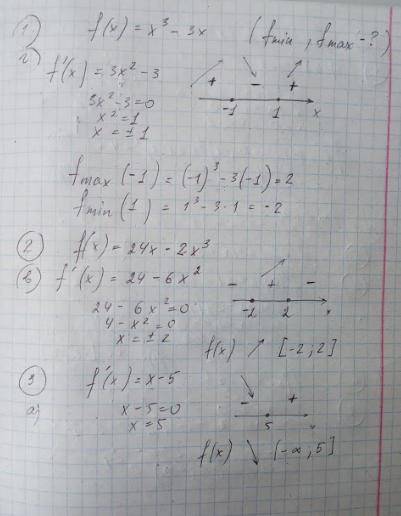 ① f(x) = x³ - 3x ( fmin , fmax - ? )
г) f'(x) = 3x² - 3
+ - +
3x² - 3 = 0
-1 1 x
x² = 1
x = ±1
fmax (-1) = (-1)³ - 3(-1) = 2
fmin (1) = 1³ - 3·1 = -2
② f(x) = 24x - 2x³
в) f'(x) = 24 - 6x²
- + -
24 - 6x² = 0
-2 2 x
4 - x² = 0
x = ±2
f(x) ↗ [-2; 2]
③ f'(x) = x - 5
а) x - 5 = 0
- +
x = 5
5 x
f(x) ↘ (-∞; 5]